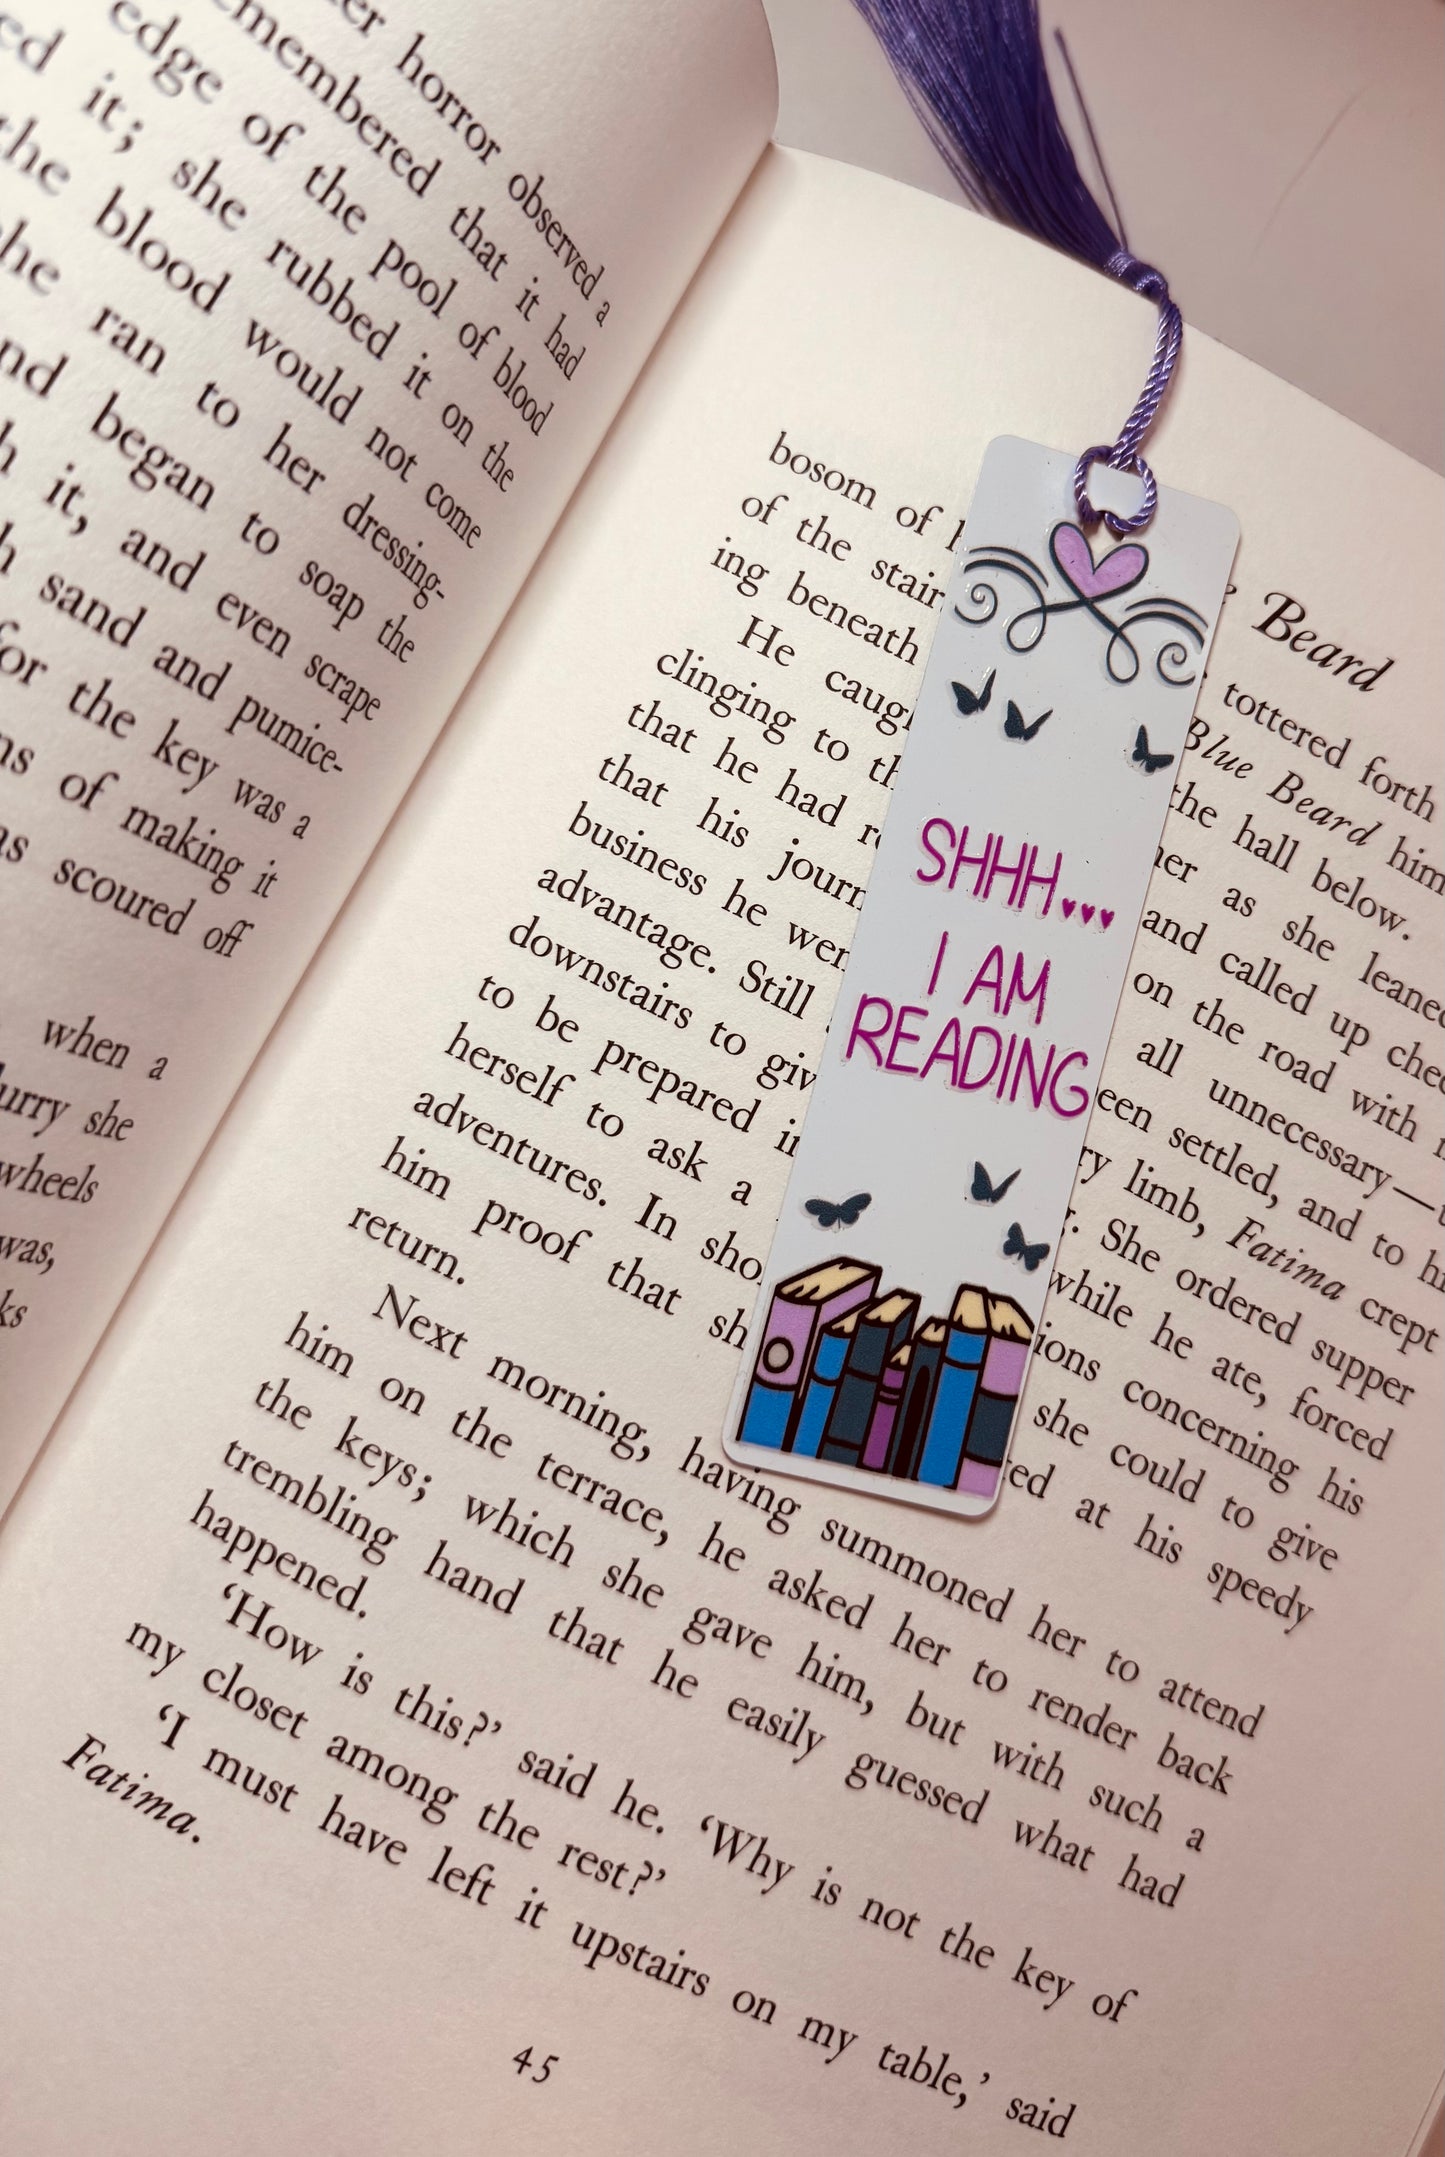 horror observed a
emembered that it had
edge of the pool of blood
ed it; she rubbed it on the
the blood would not come
she ran to her dressing-
nd began to soap the
it, and even scrape
sand and pumice-
for the key was a
ns of making it
as scoured off
when a
lurry she
wheels
was,
ks
Beard
bosom of tottered forth
of the stair Blue Beard him
ing beneath the hall below.
He caugh her as she leaned
clinging to th and called up
that he had on the road with
that his journ all unnecessary—
business he wer een settled, and to
advantage. Still ry limb, Fatima crept
downstairs to giv She ordered supper
to be prepared while he ate, forced
herself to ask a ions concerning his
adventures. In sho she could to give
him proof that sh ed at his speedy
return.
Next morning, having summoned her to attend
him on the terrace, he asked her to render back
the keys; which she gave him, but with such a
trembling hand that he easily guessed what had
happened.
‘How is this?’ said he. ‘Why is not the key of
my closet among the rest?’
‘I must have left it upstairs on my table,’ said
Fatima.
45
SHHH...
I AM
READING